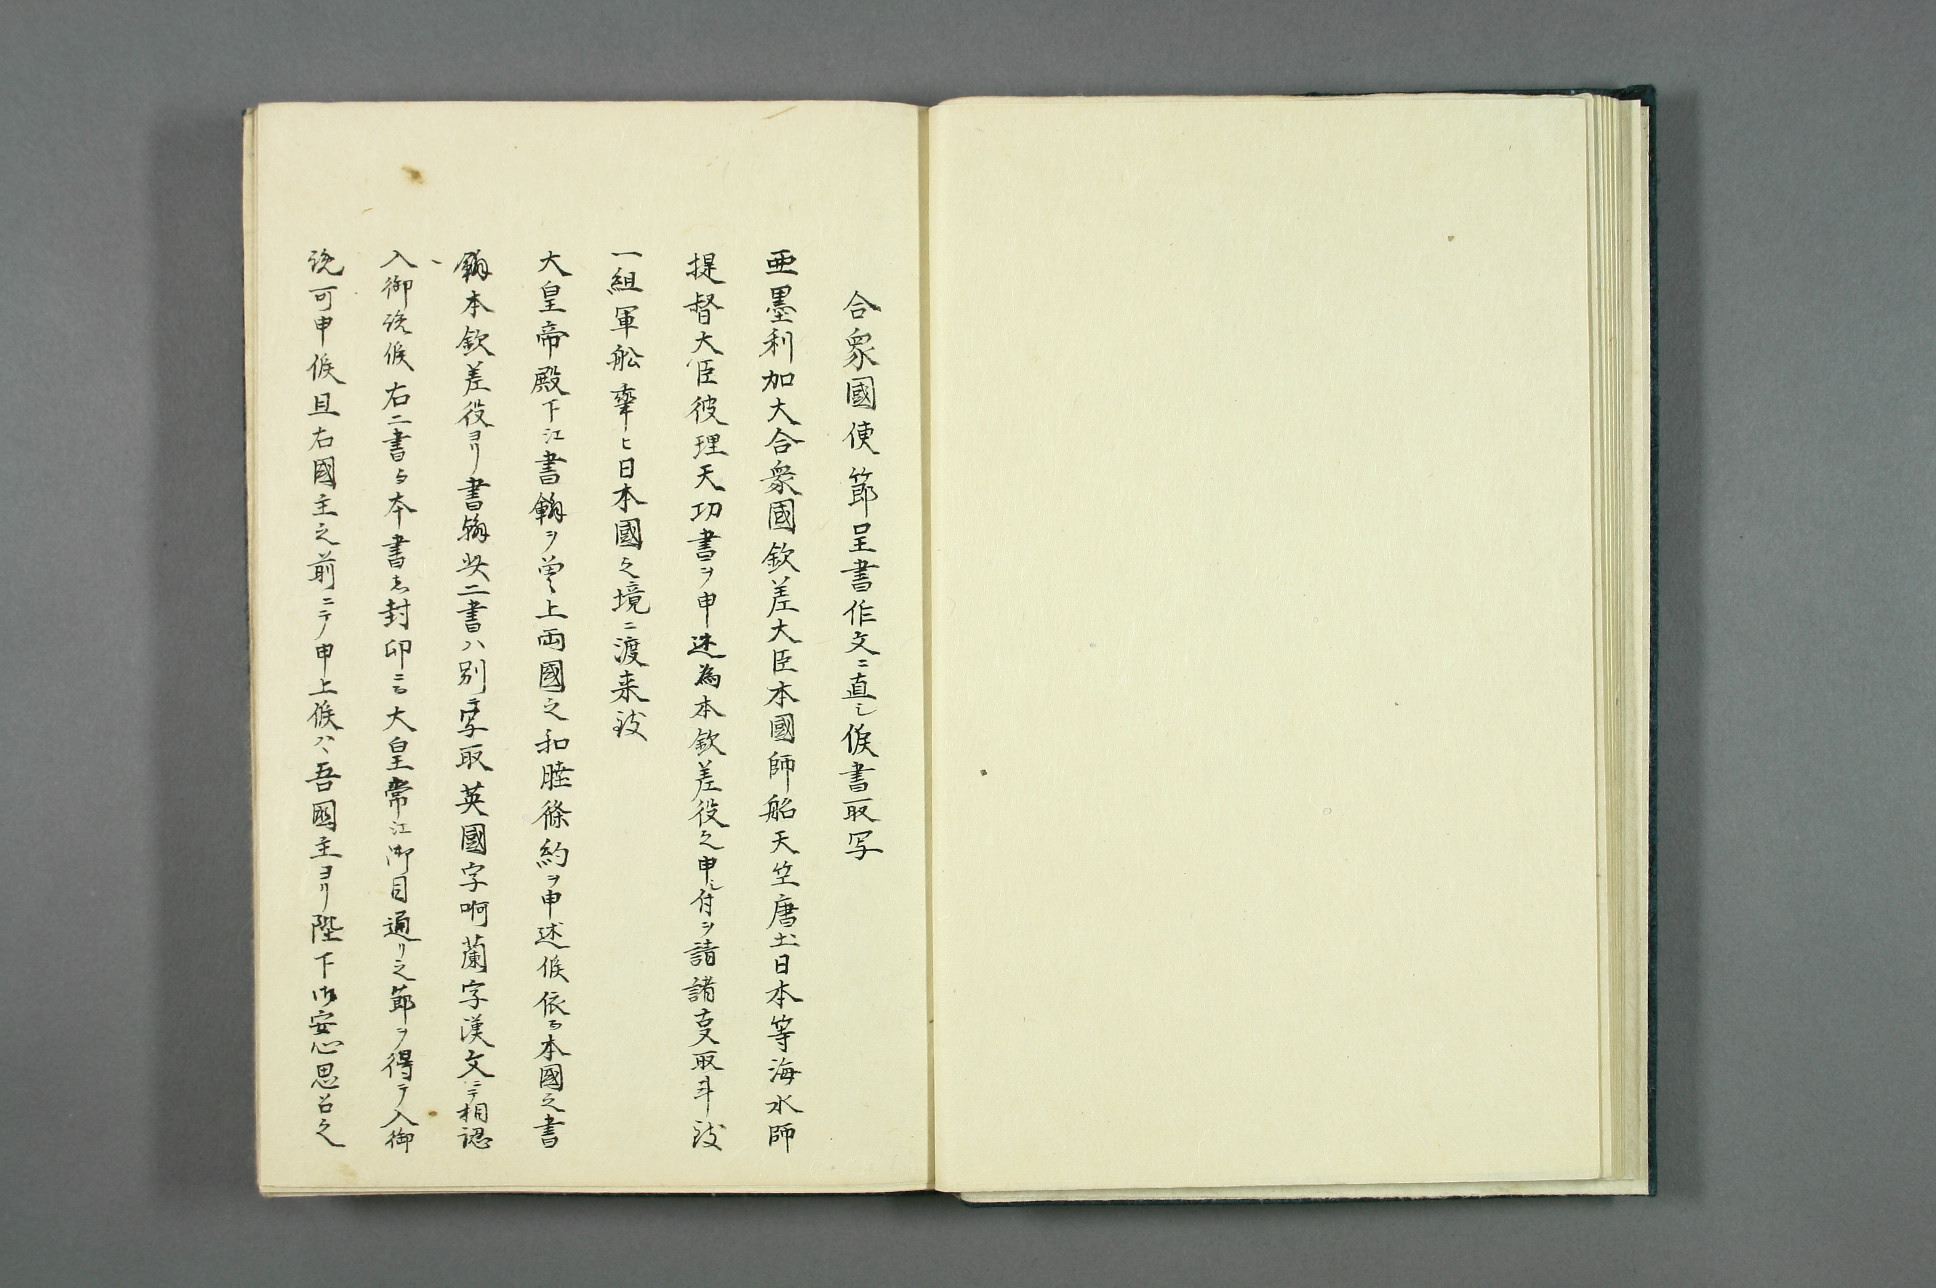 合衆國使節呈書作文ニ直し候書取写
亜墨利加大合衆國欽差大臣本國師船天竺唐土日本等海水師
提督大臣彼理天功書ヲ申述為本欽差役之申し付ヲ請諸叓取斗致
一組軍舩率ヒ日本國之境ニ渡来致
大皇帝殿下江書翰ヲ奉上両國之和睦條約ヲ申述候依而本國之書
翰本欽差役ヨリ書翰共二書ハ別ニ写取英國字啊蘭字漢文ニテ相認
入御覧候右二書与本書者封印ニ而大皇帝江御目通リ之節ヲ得テ入御
覧可申候且右國主之前ニテ申上候ハ吾國主ヨリ陛下御安心思召之